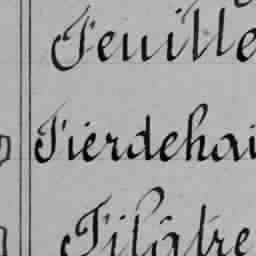 Feuille
Fierdehai
Filâtre